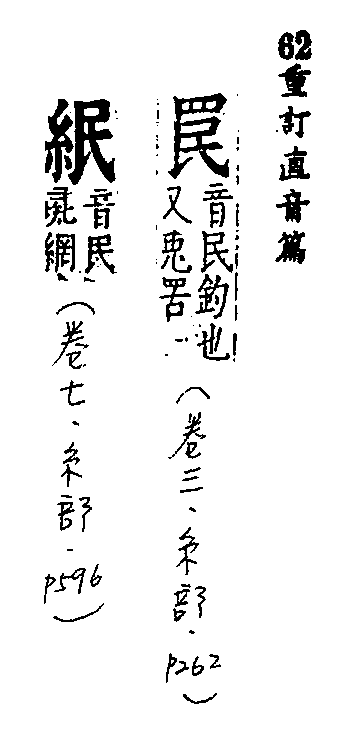 62重訂直音篇
罠
音民釣也
又兎罟
(卷三、糸部.p262)
紙
音民
罠網
(卷七、糸部.p596)